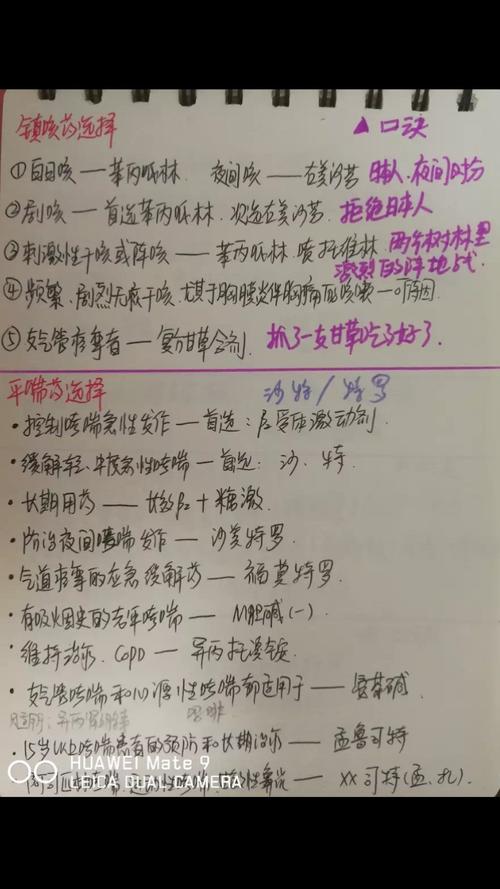 镇咳药选择 ▲口诀
①白日咳—苯丙哌林. 夜间咳——右美沙芬 日本人、夜间
②剧咳—首选苯丙哌林.次选右美沙芬. 拒绝日本人
③刺激性干咳或阵咳——苯丙哌林.喷托维林 两个树林里
激烈的阵地战.
④频繁、剧烈无痰干咳.尤其于胸膜炎伴胸痛的咳嗽—可待因
⑤支气管痉挛者—复方甘草合剂. 抓了一支甘草吃了好了.
平喘药选择 沙特/特罗
·控制哮喘急性发作—首选:β受体激动剂.
·缓解轻、中度急性哮喘—首选:沙.特.
·长期用药——长效β2+糖激.
·防治夜间哮喘发作—沙美特罗.
·气道痉挛的应急缓解药—福莫特罗.
·有吸烟史的老年哮喘——M胆碱(-)
·维持治疗.COPD—异丙托溴铵.
·支气管哮喘和心源性哮喘都适用于——氨茶碱.
·15岁以上哮喘患者的预防和长期治疗—孟鲁司特
HUAWEI Mate 9
LEICA DUAL CAMERA
—XX司特(孟.扎).